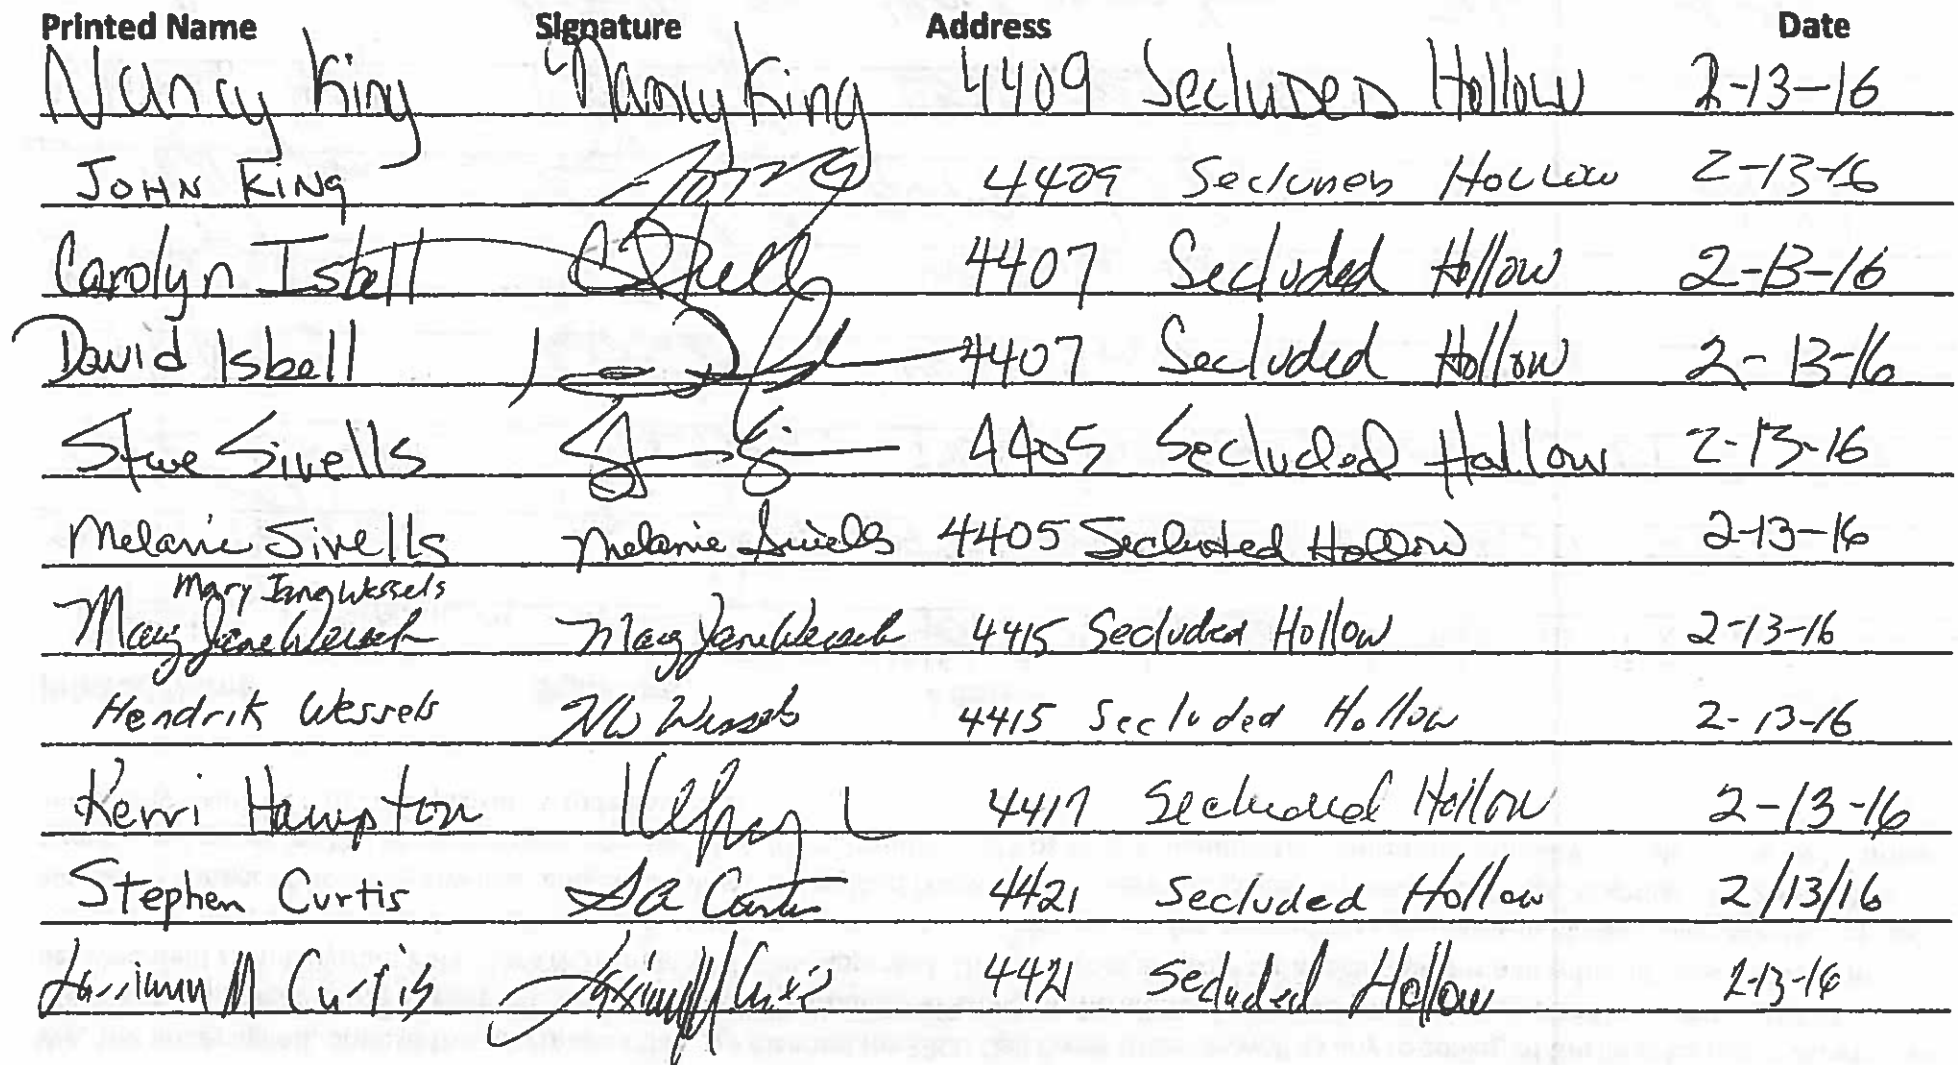 Printed Name Signature Address Date
Nancy King Nancy King 4409 Secluded Hollow 2-13-16
John King 4409 Secluded Hollow 2-13-16
Carolyn Isbell 4407 Secluded Hollow 2-13-16
David Isbell 4407 Secluded Hollow 2-13-16
Steve Sivells 4405 Secluded Hollow 2-13-16
Melanie Sivells Melanie Sivells 4405 Secluded Hollow 2-13-16
Mary Jane Wessels
Mary Jane Wessels Mary Jane Wessels 4415 Secluded Hollow 2-13-16
Hendrik Wessels Wessels 4415 Secluded Hollow 2-13-16
Kerri Hampton 4417 Secluded Hollow 2-13-16
Stephen Curtis Curtis 4421 Secluded Hollow 2/13/16
Curtis 4421 Secluded Hollow 2-13-16